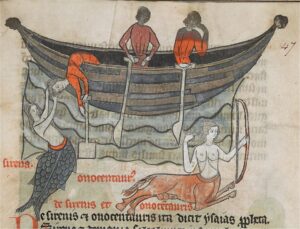 47
sirena
onocentaur'
de sirenis et onocentauris
e sirenis & onocentauris ita dicit ysaias ppheta